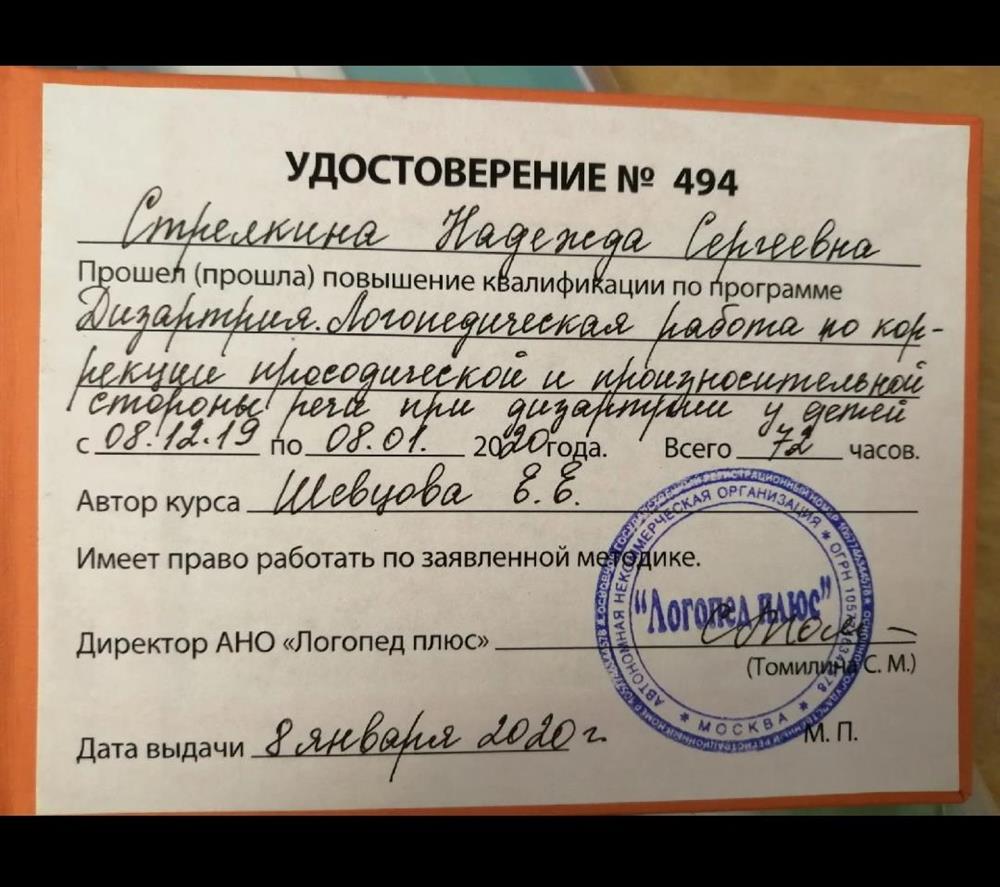 УДОСТОВЕРЕНИЕ № 494
Стрелкина Надежда Сергеевна
Прошел (прошла) повышение квалификации по программе
Дизартрия. Логопедическая работа по кор-
рекции просодической и произносительной
стороны речи при дизартрии у детей
с 08.12.19 по 08.01. 2020года. Всего 72 часов.
Автор курса Шевцова Е.Е.
Имеет право работать по заявленной методике.
Директор АНО «Логопед плюс»
(Томилина С. М.)
Дата выдачи 8 января 2020 г.
М. П.
АВТОНОМНАЯ НЕКОММЕРЧЕСКАЯ ОРГАНИЗАЦИЯ
"Логопед плюс"
МОСКВА